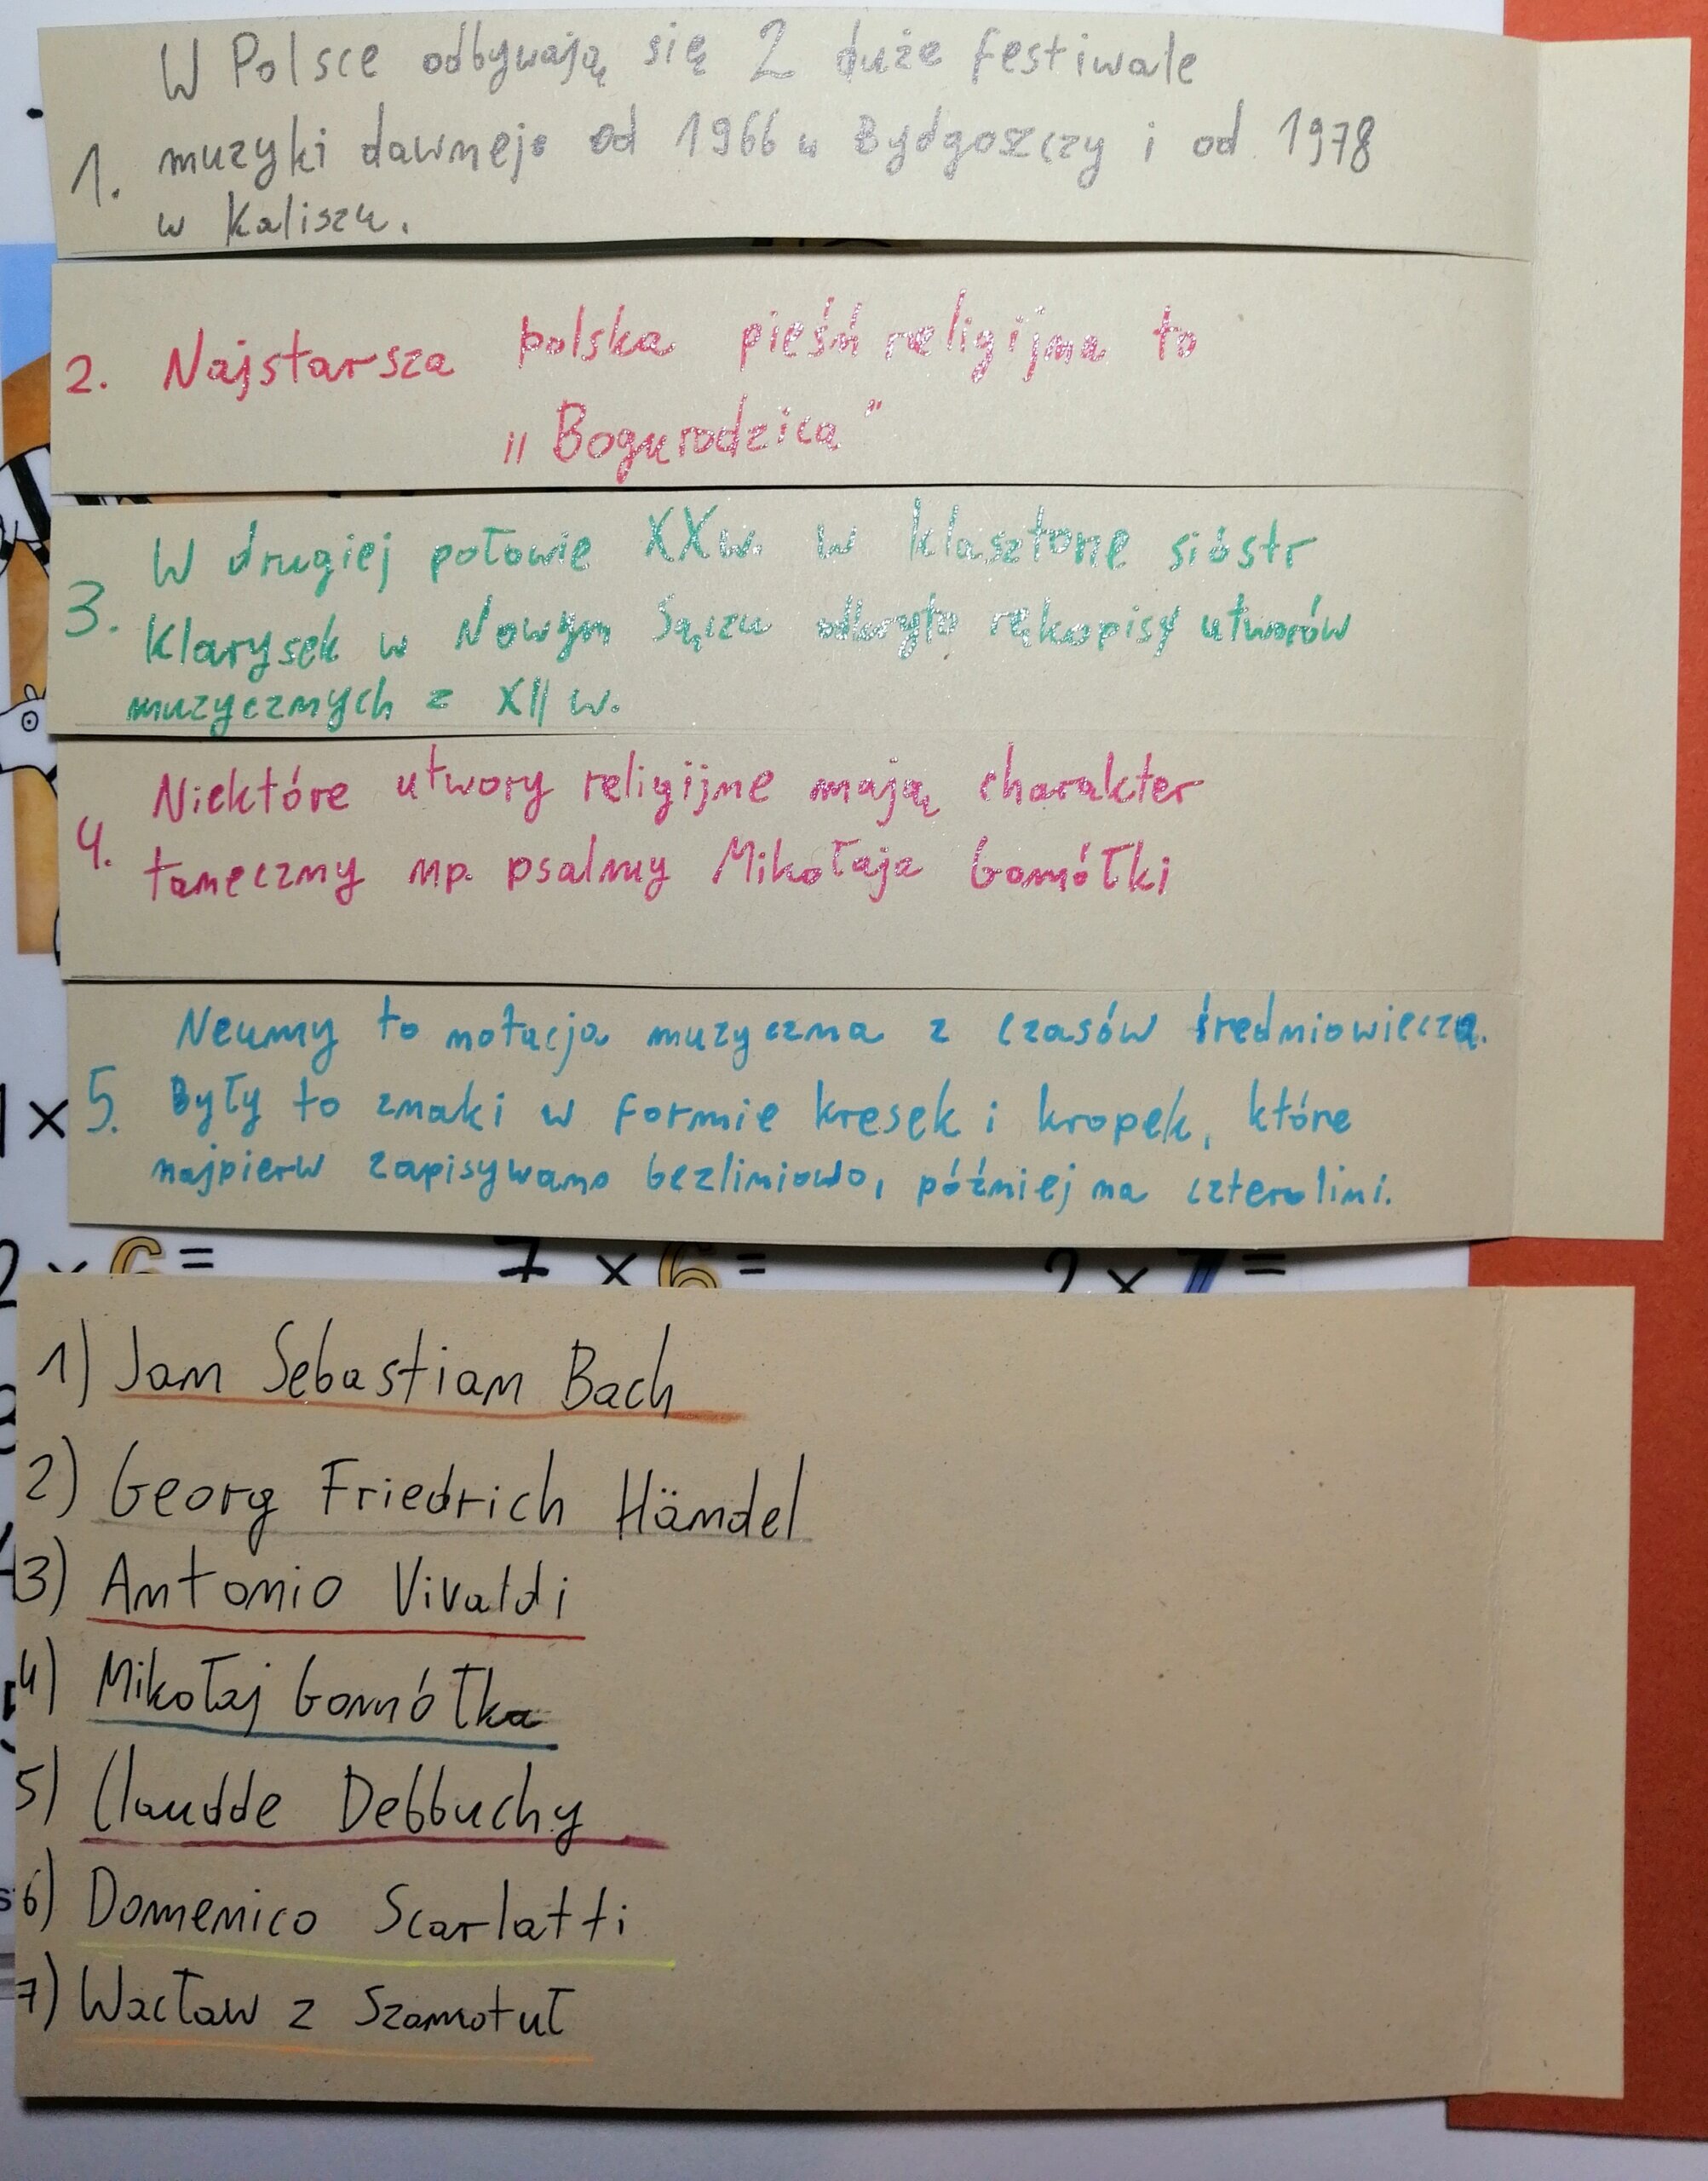 W Polsce odbywają się 2 duże festiwale
1. muzyki dawnej: od 1966 w Bydgoszczy i od 1978
w Kaliszu.
2. Najstarsza polska pieśń religijna to
„Bogurodzica"
W drugiej połowie XXw. w klasztorze sióstr
3. Klarysek w Nowym Sączu odkryto rękopisy utworów
muzycznych z XII w.
Niektóre utwory religijne mają charakter
4. taneczny np. psalmy Mikołaja Gomółki
Neumy to notacja muzyczna z czasów średniowiecza.
5. Były to znaki w formie kresek i kropek, które
najpierw zapisywano bezliniowo, później na czterolini.
1 ×
2 × 6 = 7 × 6 = 2 × 7 =
1) Jan Sebastian Bach
2) Georg Friedrich Händel
3) Antonio Vivaldi
4) Mikołaj Gomółka
5) Claudde Debbuchy
6) Domenico Scarlatti
7) Wacław z Szamotuł